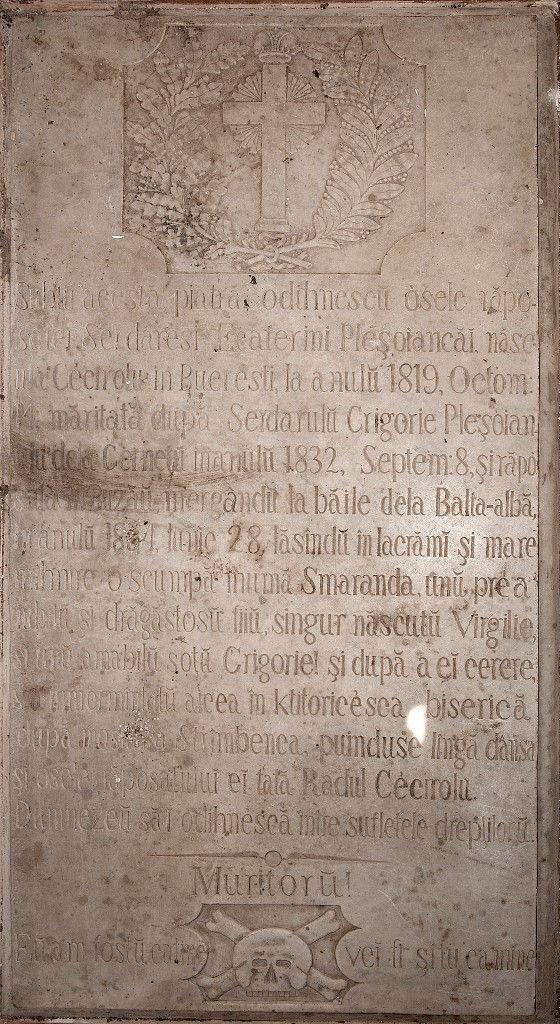 Subtŭ acésta piatră, odihnescŭ ósele răpo-
setei Serdăresi Ecaterini Pleşoiancăi, năse
la Cécîrolu in Bucresti, la anulŭ 1819, Octom:
14, măritată după Serdarulŭ Grigorie Pleşoian,
dela Cerneţu 1832, Septem: 8, şi răpo
sată în Buzău, mergândŭ la băile dela Balta-albă,
anulŭ Iunie 28, lăsindŭ în lacrămĭ şi mare
mihnire o scumpă mumă Smaranda, unŭ pré a
şi drăgăstosŭ fiiŭ, singur născutŭ Virgilie,
şi unŭ amabilŭ soţŭ Grigorieĭ şi după a eĭ cerere,
aicea in ktitoricésca biserică
după Strîmbenca, puinduse lîngă dânsa
şi ósele răposatului eĭ tată Radul Cécîrolu.
Dumnezeŭ să-ĭ odihnéscă intre sufletele drepţilorŭ.
Muritorŭ!
Eŭ am fostŭ ca tine vei fi şi tu ca mine